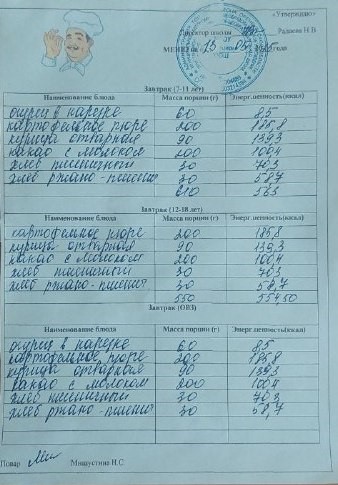 «Утверждаю»
Директор школы Радаева Н.В
МЕНЮ 23 05 2025 года.
Завтрак (7-11 лет)
Наименование блюда Масса порции (г) Энерг.ценность(ккал)
огурец в нарезке 60 8,5
картофельное пюре 200 185,8
курица отварная 90 139,3
какао с молоком 200 100,4
хлеб пшеничный 30 70,3
хлеб ржано-пшенич 30 58,7
610 563
Завтрак (12-18 лет)
Наименование блюда Масса порции (г) Энерг.ценность(ккал)
картофельное пюре 200 185,8
курица отварная 90 139,3
какао с молоком 200 100,4
хлеб пшеничный 30 70,3
хлеб ржано-пшенич 30 58,7
550 554,50
Завтрак (ОВЗ)
Наименование блюда Масса порции (г) Энерг.ценность(ккал)
огурец в нарезке 60 8,5
картофельное пюре 200 185,8
курица отварная 90 139,3
какао с молоком 200 100,4
хлеб пшеничный 30 70,3
хлеб ржано-пшенич 30 58,7
Повар Мишустина Н.С.